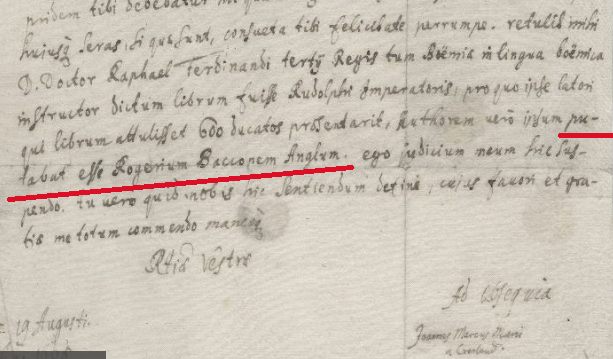 pridem tibi debebatur
hujusq seras, si quæ sunt, consueta tibi felicitate perrumpe. retulit mihi
D. Doctor Raphael Ferdinandi tertij Regis tum Boëmiæ in lingua boëmica
instructor dictum librum fuisse Rudolphi Imperatoris, pro quo ipse latori
qui librum attulisset 600 ducatos præsentarit, Authorem vero ipsum pu-
tabat esse Rogerium Bacconem Anglum. ego judicium meum hic sus-
pendo. tu vero quid nobis hic sentiendum defini, cujus favori et gra-
tiæ me totum commendo maneoq
Rtiæ Vestræ
Ad Obsequia
19 Augusti.
Joannes Marcus Marci
a Cronland